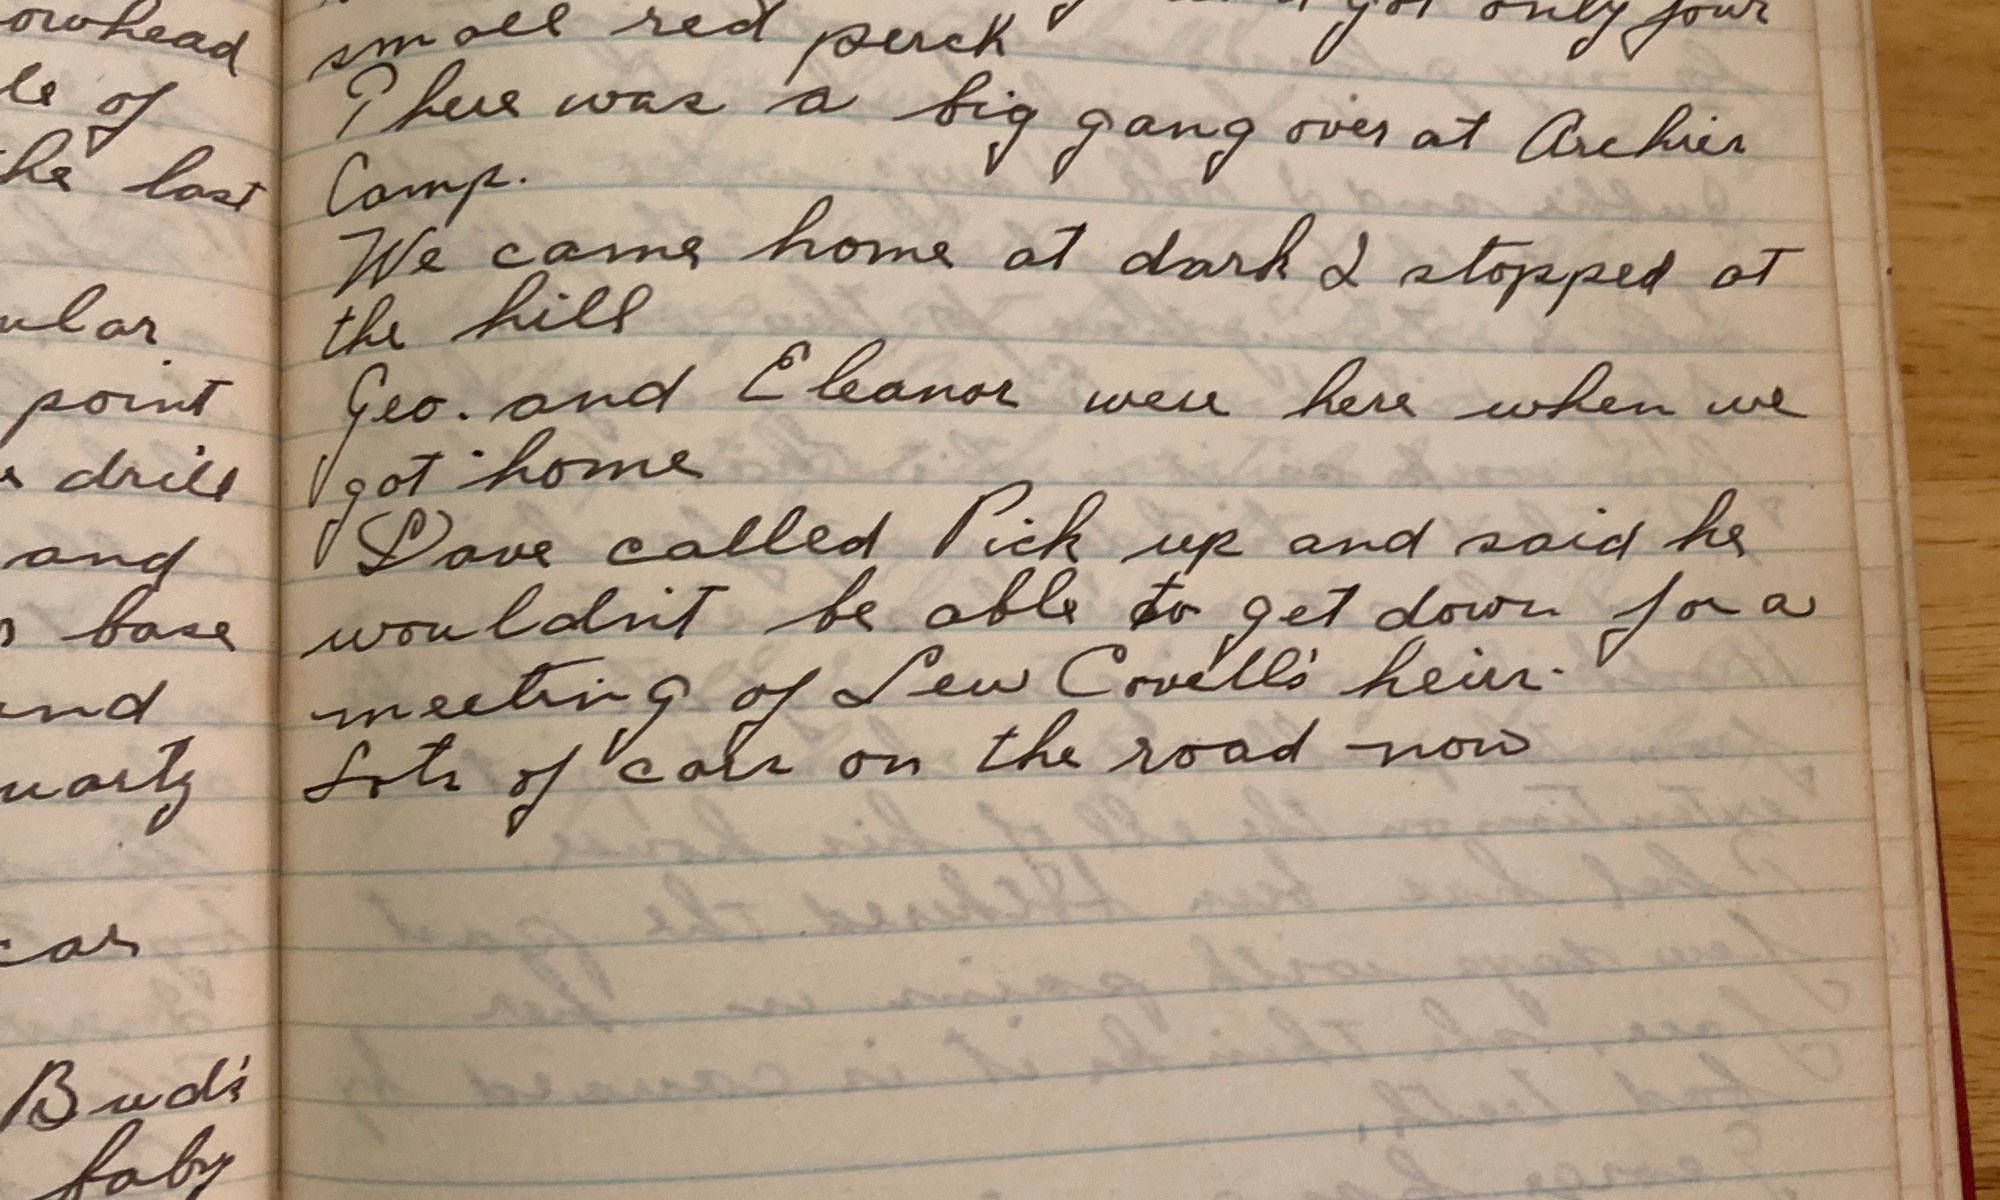 owhead
le of
he last
ular
point
drill
and
base
nd
uartz
car
Bud's
baby
got only four
small red perch
There was a big gang over at Archies
Camp.
We came home at dark & stopped at
the hill
Geo. and Eleanor were here when we
got home
Dave called Pick up and said he
wouldn't be able to get down for a
meeting of Lew Covell's heirs.
Lots of cars on the road now